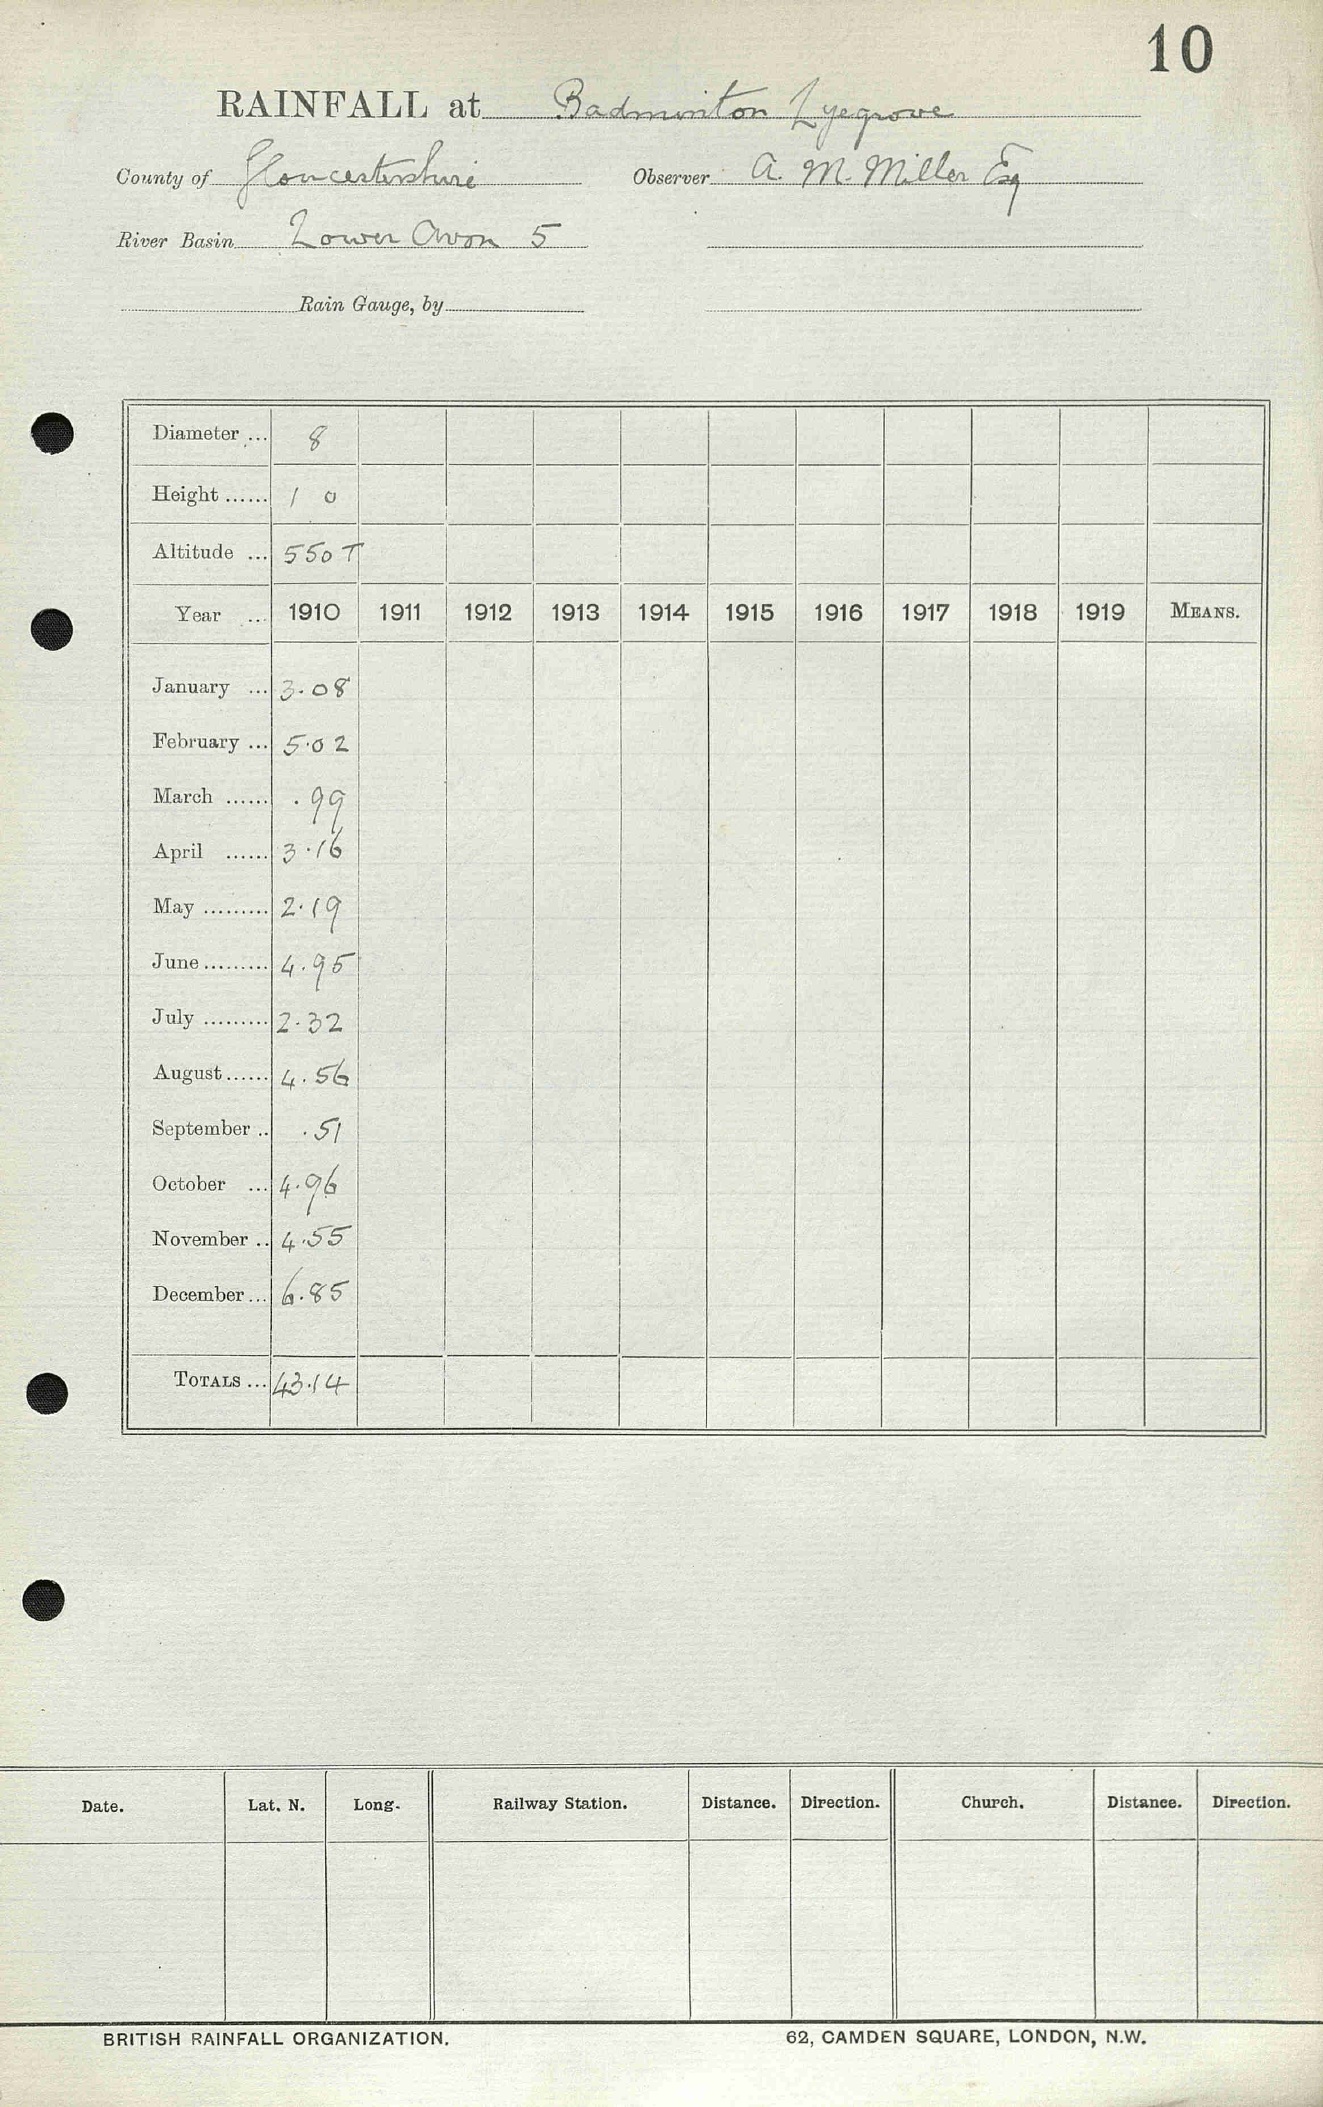 10
RAINFALL at Badminton Lyegrove
County of Gloucestershire Observer A. M. Miller Esq
River Basin Lower Avon 5
Rain Gauge, by
Diameter ... 8
Height ...... 1 0
Altitude ... 550 T
Year ... 1910 1911 1912 1913 1914 1915 1916 1917 1918 1919 MEANS.
January ... 3.08
February ... 5.02
March ...... .99
April ...... 3.16
May ......... 2.19
June ......... 4.95
July ......... 2.32
August ...... 4.56
September .. .51
October ... 4.96
November .. 4.55
December ... 6.85
TOTALS ... 43.14
Date. Lat. N. Long. Railway Station. Distance. Direction. Church. Distance. Direction.
BRITISH RAINFALL ORGANIZATION. 62, CAMDEN SQUARE, LONDON, N.W.